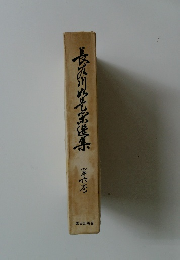 長谷川如是閑選集
第六巻